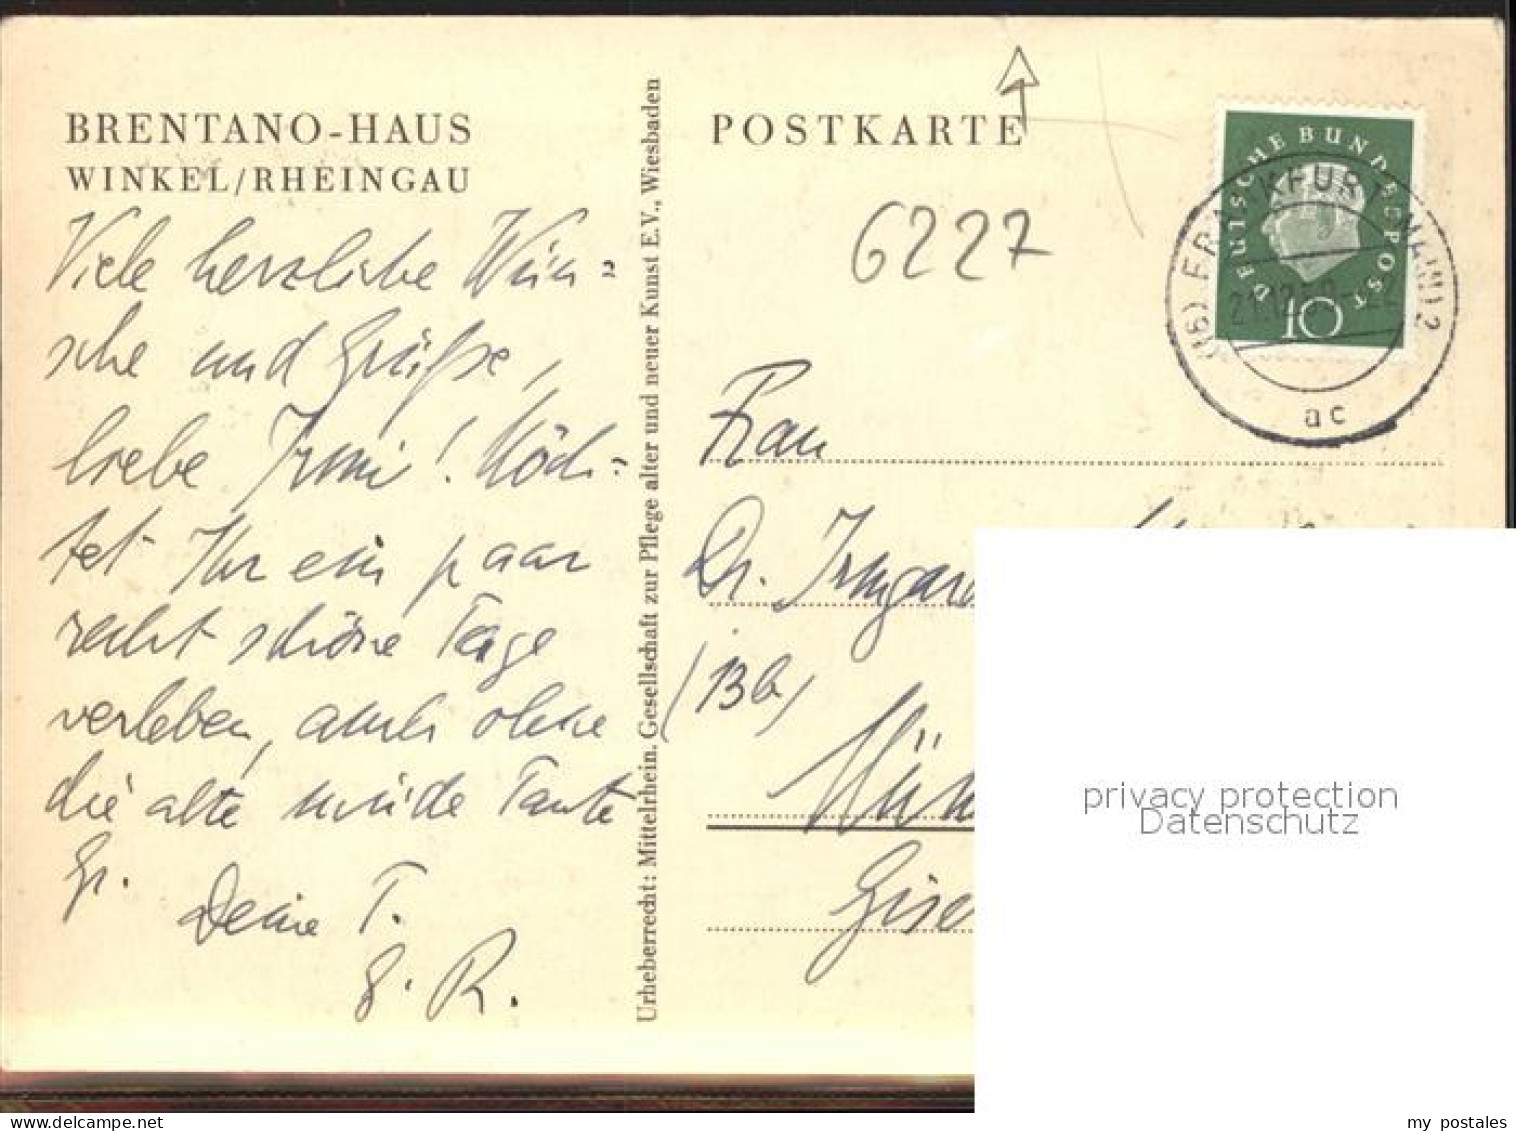 BRENTANO-HAUS
WINKEL/RHEINGAU
Viele herzliche Wün=
sche und Grüße,
liebe Irmi! Möch=
tet Ihr ein paar
recht schöne Tage
verleben, auch ohne
die alte müde Tante
Gr.
Deine T.
G. R.
Urheberrecht: Mittelrhein. Gesellschaft zur Pflege alter und neuer Kunst E.V., Wiesbaden
POSTKARTE
6227
DEUTSCHE BUNDESPOST
10
(16) FRANKFURT (MAIN) 2
21.12.59
ac
Frau
Dr. Irmgard
(13b)
Mün
Gise
privacy protection
Datenschutz
my postales